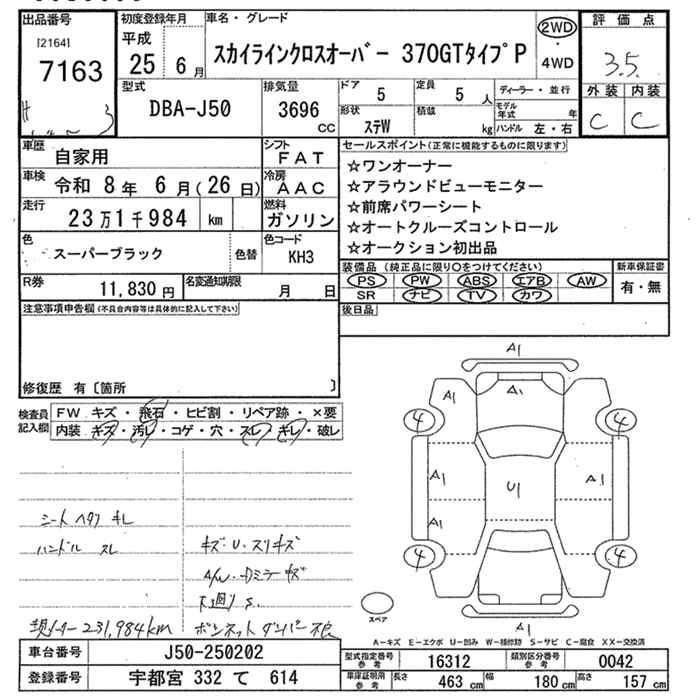 出品番号
[2164]
7163
初度登録年月
平成
25 6 月
車名・グレード
スカイラインクロスオーバー 370GTタイプP
2WD
4WD
評価点
3.5
外装 内装
C C
型式
DBA-J50
排気量
3696 cc
ドア 5
定員 5 人
形状 ステW
積載 kg
ディーラー・並行
モデル年式 年
ハンドル 左・右
車歴 自家用
シフト FAT
車検 令和 8 年 6 月(26日)
冷房 AAC
走行 23万1千984 km
燃料 ガソリン
色 スーパーブラック
色替
色コード KH3
R券 11,830 円
名変通知期限 月 日
セールスポイント(正常に機能するものに限ります)
☆ワンオーナー
☆アラウンドビューモニター
☆前席パワーシート
☆オートクルーズコントロール
☆オークション初出品
装備品(純正品に限り○をつけてください)
PS PW ABS エアB AW
SR ナビ TV カワ
新車保証書
有・無
後日品
注意事項申告欄(不具合内容等は具体的に記入して下さい)
修復歴 有〔箇所 〕
検査員記入欄
FW キズ・飛石・ヒビ割・リペア跡・×要
内装 キズ・汚レ・コゲ・穴・スレ・キレ・破レ
シートヘタリ キレ
ハンドル スレ
キズ・U・スリキズ
A/W・Dミラーキズ
下廻り S.
現メーター 231,984km
ボンネットダンパー不良
A1
A1
A1
4
4
A1
A1
U1
A1
4
4
A1
スペア
A-キズ E-エクボ U-凹み W-補修跡 S-サビ C-腐食 XX-交換済
車台番号 J50-250202
登録番号 宇都宮 332 て 614
型式指定番号 参考 16312
類別区分番号 参考 0042
車庫証明用 参考 長さ 463 cm 幅 180 cm 高さ 157 cm